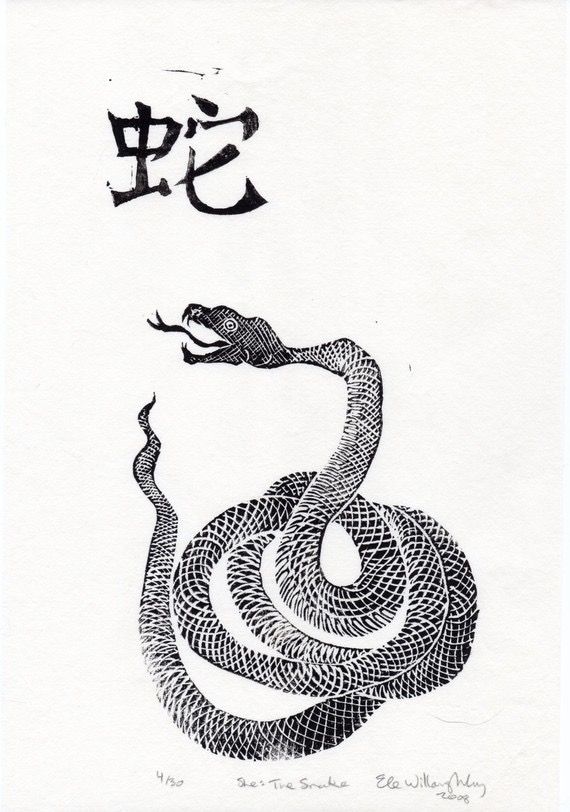 蛇
4/30 She: The Snake Ele Willoughby
2008